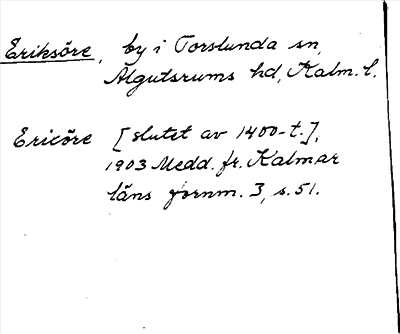 Eriksöre, by i Torslunda sn,
Algutsrums hd, Kalm. l.
Ericöre [slutet av 1400-t.],
1903 Medd. fr. Kalmar
läns fornm. 3, s. 51.